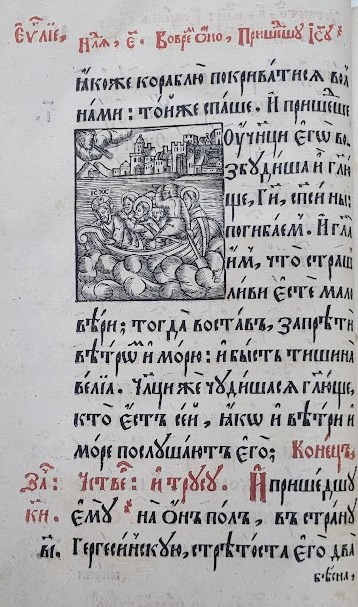 Єѵⷢ҇ліе, Нⷣ҇лѧ, є҃. Во времѧ ѻно, Пришеⷣшу Іс҃у
ꙗкоже кораблю покриватисѧ вол
нами : той же спаше. И пришеⷣше
Оучн҃ци єгѡ воⷥ
збудиша и гл҃ю
ще, Гд҃и, сп҃си ны :
погибаемⸯ. И гл҃а
имⸯ, что страш
ливи єсте мали
вѣри; тогда воставъ, запрѣти
вѣтрѡⷨ и морю : и бысть тишина
велїа. Чл҃ци же чудишасѧ гл҃юще,
кто єстъ сей, ꙗкѡ и вѣтри и
море послушаютъ єго; Конецъ,
За҃ : Чстве҃ : и трусу. И пришедшу
ки. ємꙋ на ѻнъ полъ, въ страну
в҃і. Гергесинскую, срѣтоста єго два
бѣсна,